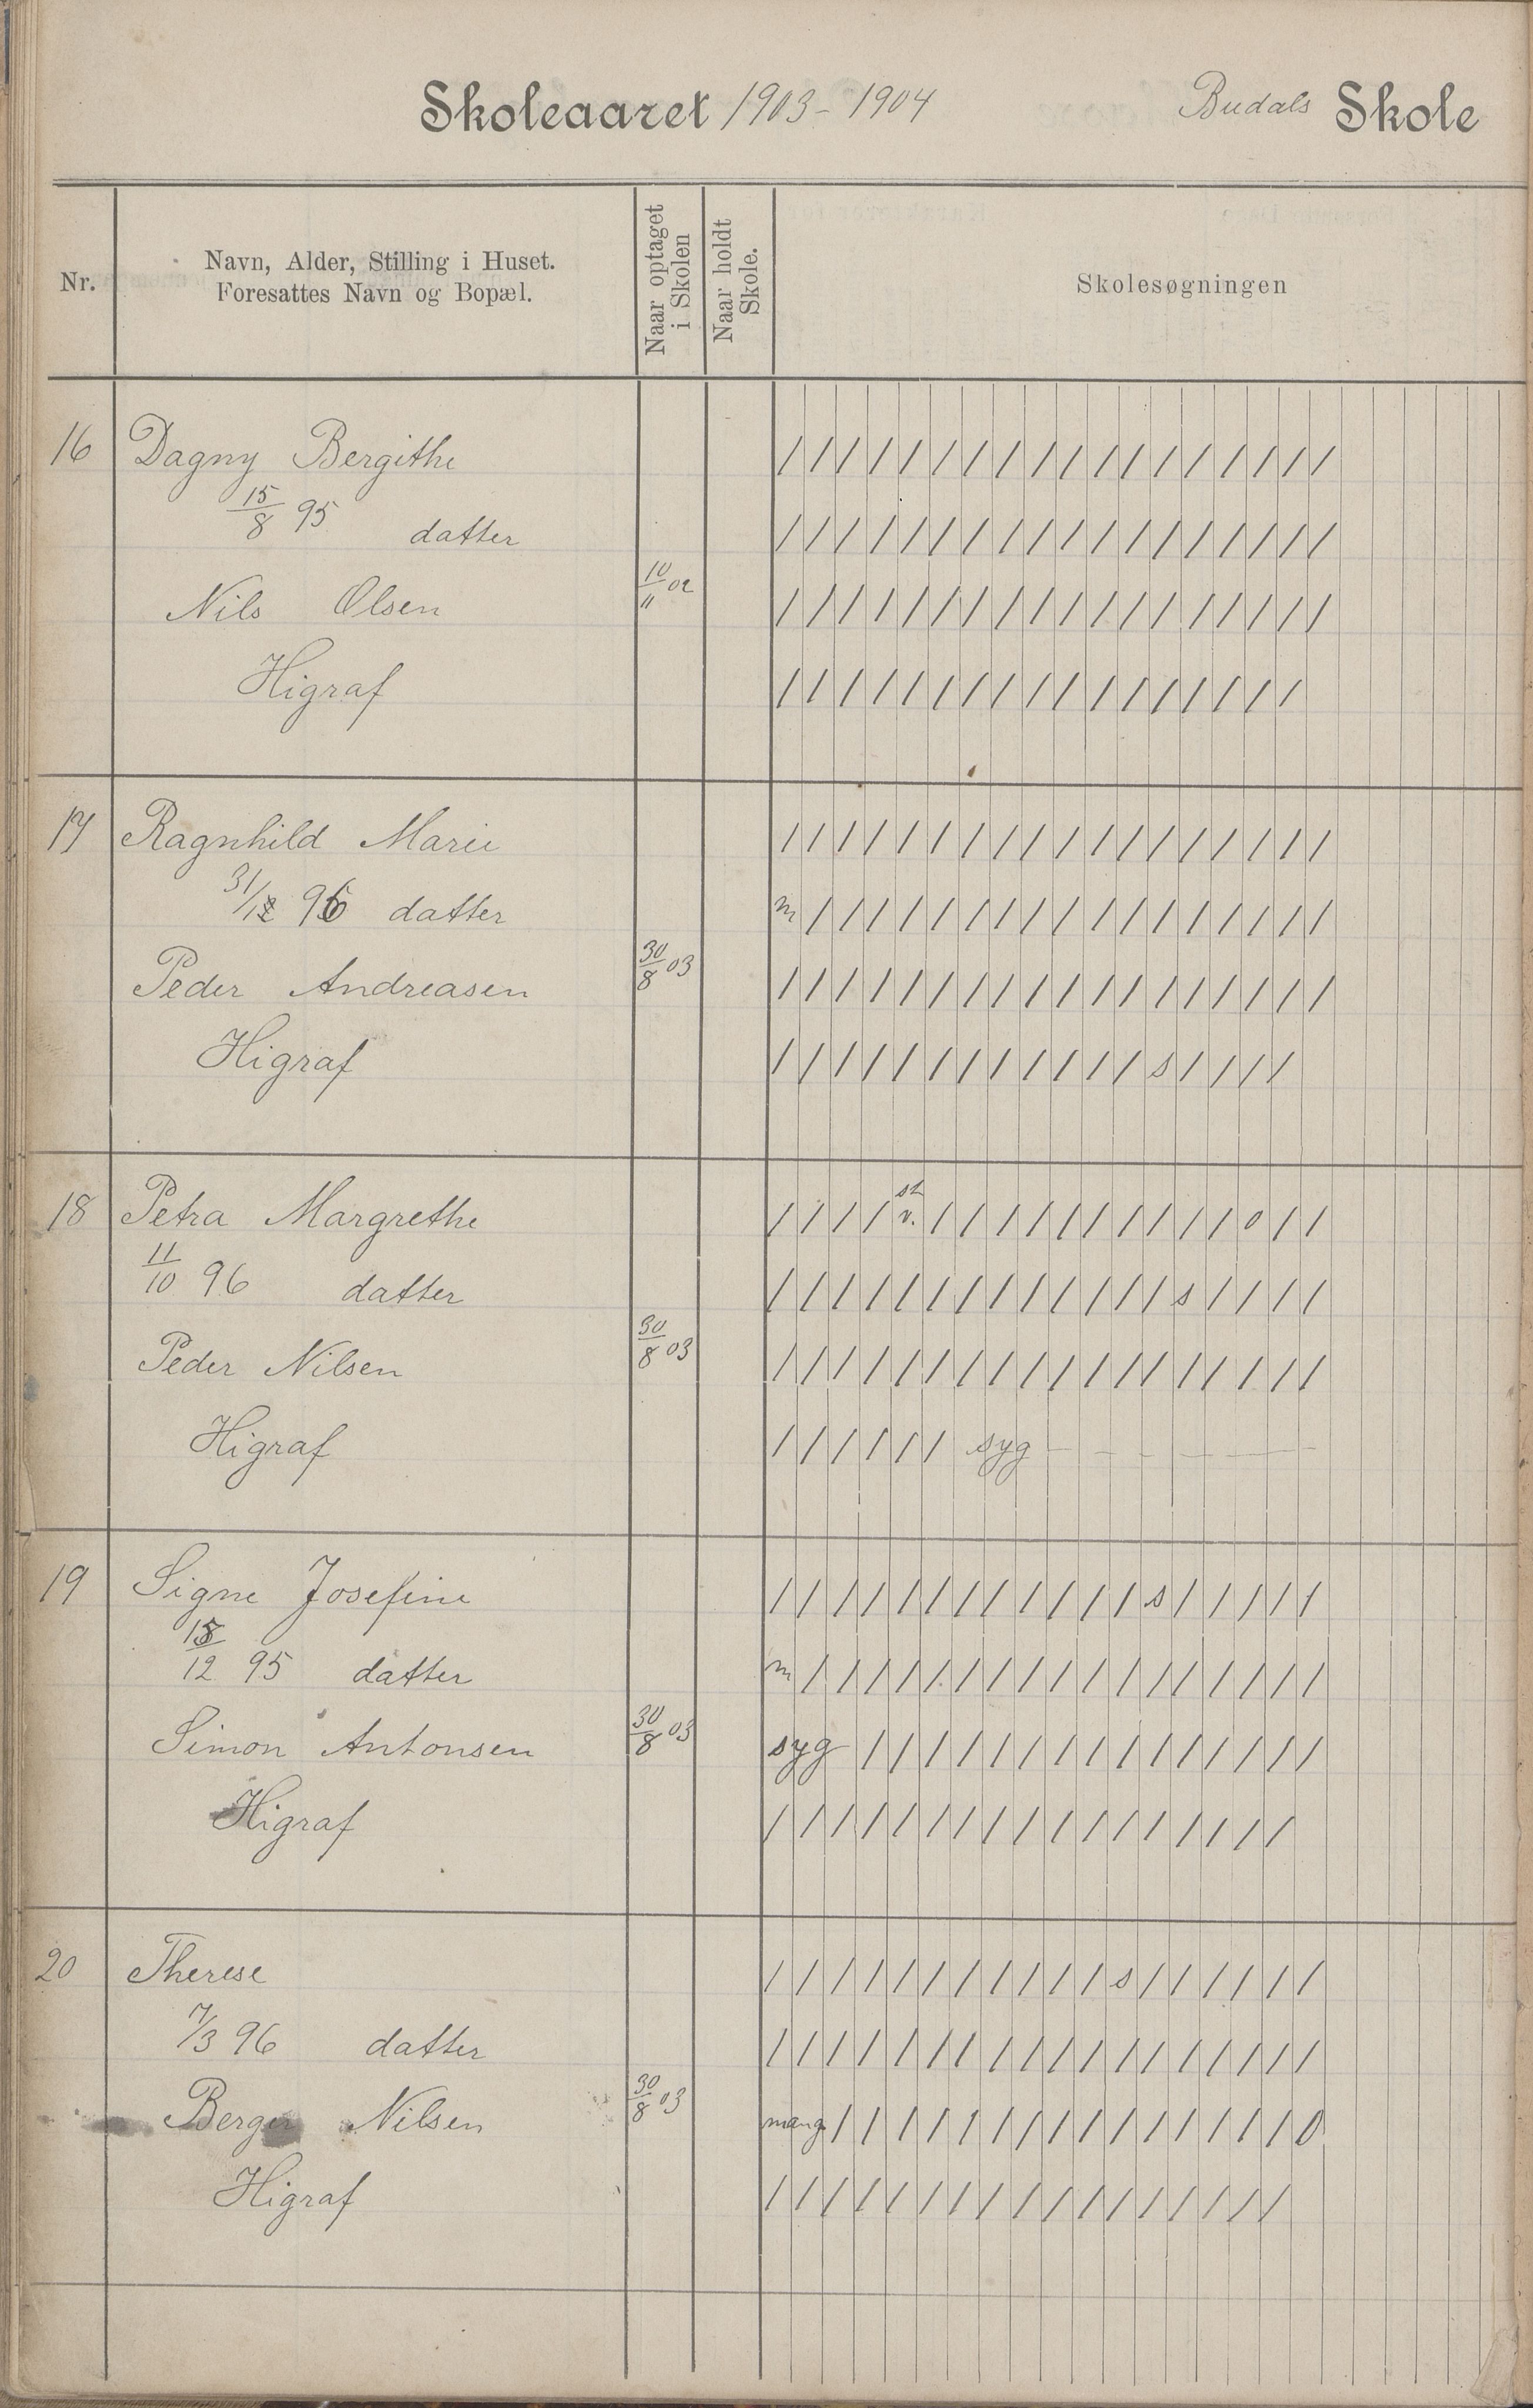 Skoleaaret 1903-1904 Budals Skole
Nr.
Navn, Alder, Stilling i Huset.
Foresattes Navn og Bopæl.
Naar optaget
i Skolen
Naar holdt
Skole.
Skolesøgningen
16 Dagny Bergithe / / / / / / / / / / / / / / / / / /
15/8 95 datter / / / / / / / / / / / / / / / / / /
Nils Olsen 10/11 02 / / / / / / / / / / / / / / / / / /
Higraf / / / / / / / / / / / / / / / / /
17 Ragnhild Marie / / / / / / / / / / / / / / / / / /
31/12 96 datter m / / / / / / / / / / / / / / / / /
Peder Andreasen 30/8 03 / / / / / / / / / / / / / / / / / /
Higraf / / / / / / / / / / / / s / / / /
18 Petra Margrethe / / / / st v. / / / / / / / / / / 0 / /
11/10 96 datter / / / / / / / / / / / / / s / / / /
Peder Nilsen 30/8 03 / / / / / / / / / / / / / / / / / /
Higraf / / / / / / syg - - - - - - -
19 Signe Josefine / / / / / / / / / / / / s / / / / /
18/12 95 datter m / / / / / / / / / / / / / / / / /
Simon Antonsen 30/8 03 syg / / / / / / / / / / / / / / /
Higraf / / / / / / / / / / / / / / / / /
20 Therese / / / / / / / / / / / s / / / / / /
7/3 96 datter / / / / / / / / / / / / / / / / / /
Berger Nilsen 30/8 03 mang. / / / / / / / / / / / / / / / 0
Higraf / / / / / / / / / / / / / / / / /